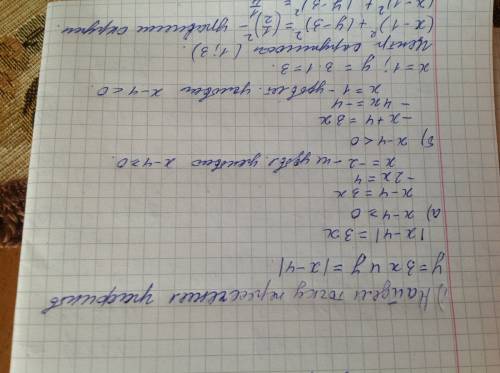 1) Найдем точку пересечения графиков
y = 3x и y = |x-4|
|x-4| = 3x
а) x-4 ≥ 0
x-4 = 3x
-2x = 4
x = -2 - не удовл. условию x-4 ≥ 0.
б) x-4 < 0
-x+4 = 3x
-4x = -4
x = 1 - удовлет. условию x-4 < 0.
x = 1; y = 3·1 = 3.
Центр окружности (1; 3).
(x-1)² + (y-3)² = (1/2)² - уравнение окружн.
(x-1)² + (y-3)² =